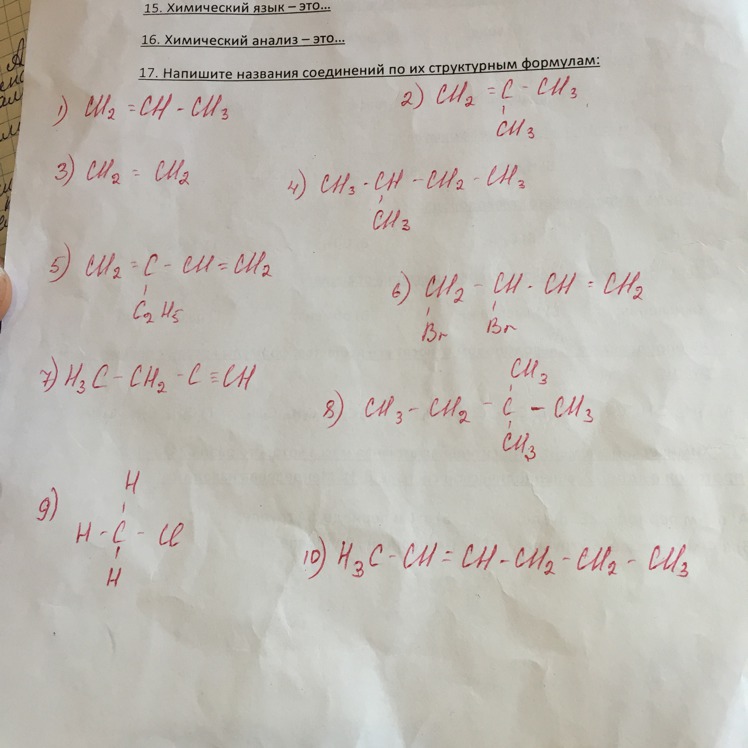 15. Химический язык – это...
16. Химический анализ – это...
17. Напишите названия соединений по их структурным формулам:
1) CH2 = CH - CH3
2) CH2 = C - CH3
CH3
3) CH2 = CH2
4) CH3 - CH - CH2 - CH3
CH3
5) CH2 = C - CH = CH2
C2H5
6) CH2 - CH - CH = CH2
Br Br
7) H3C - CH2 - C ≡ CH
CH3
8) CH3 - CH2 - C - CH3
CH3
H
9) H - C - Cl
H
10) H3C - CH = CH - CH2 - CH2 - CH3